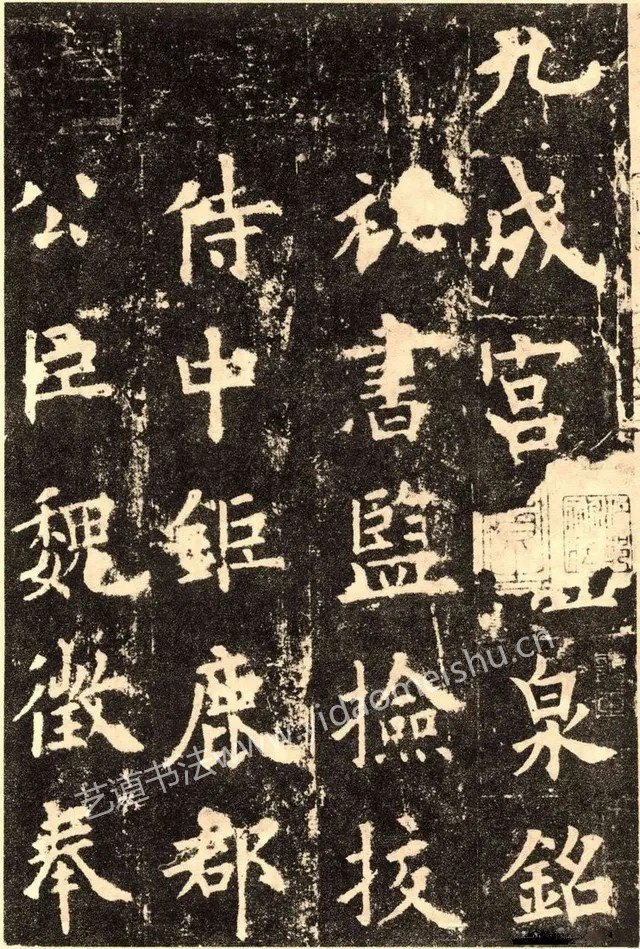 九成宮泉銘
秘書監撿挍
侍中鉅鹿郡
公臣魏徵奉
艺道书法www.yidaomeishu.cn